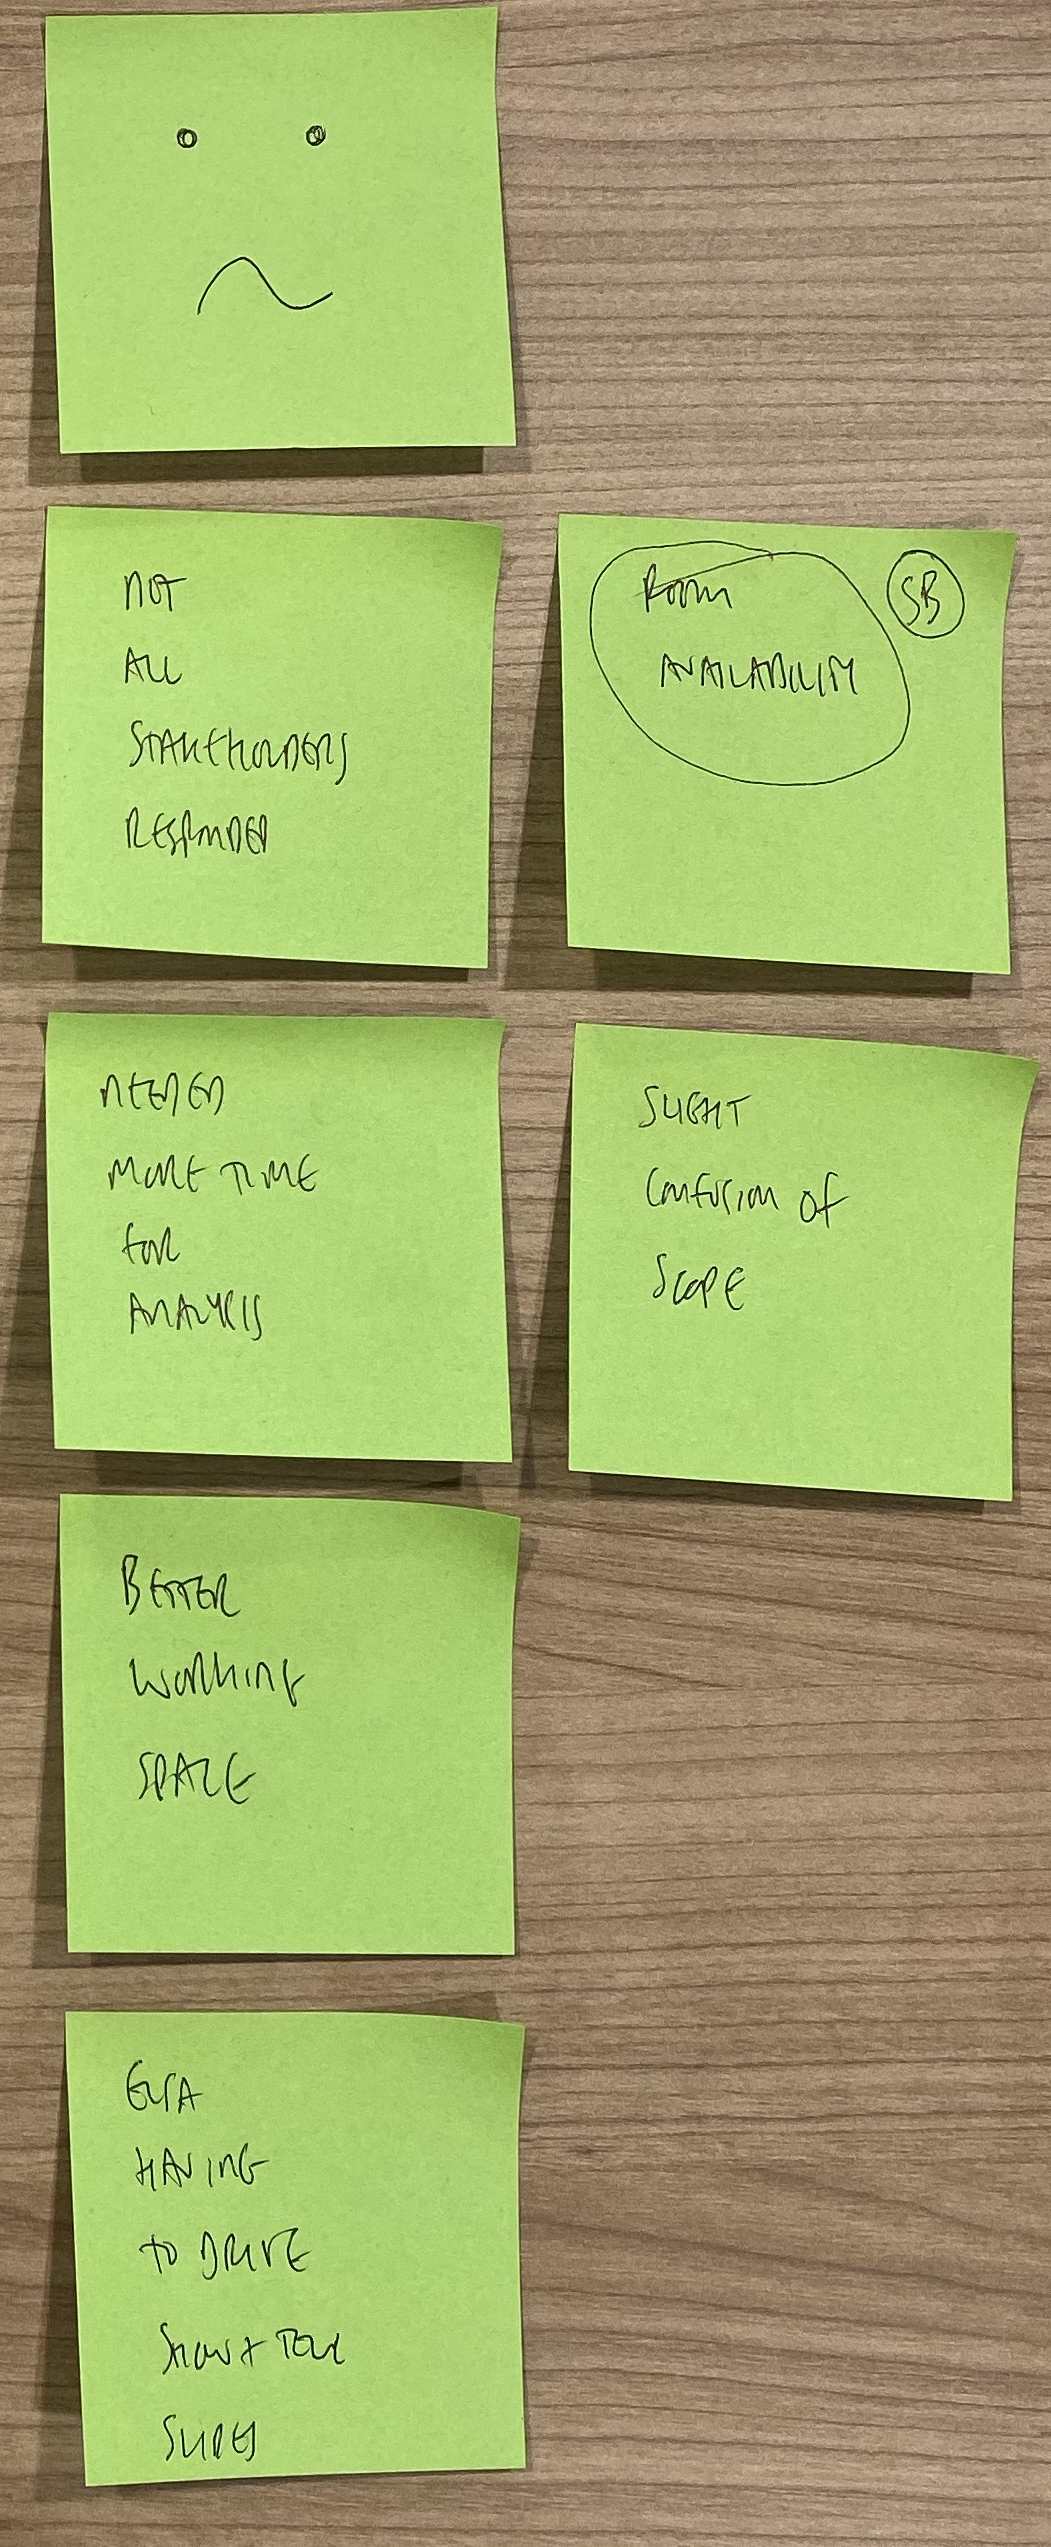 NOT
ALL
STAKEHOLDERS
RESPONDED
Room
AVAILABILITY
SB
NEEDED
MORE TIME
FOR
ANALYSIS
SLIGHT
Confusion of
SCOPE
BETTER
WORKING
SPACE
HAVING
TO DRIVE
SHOW + TELL
SLIDES